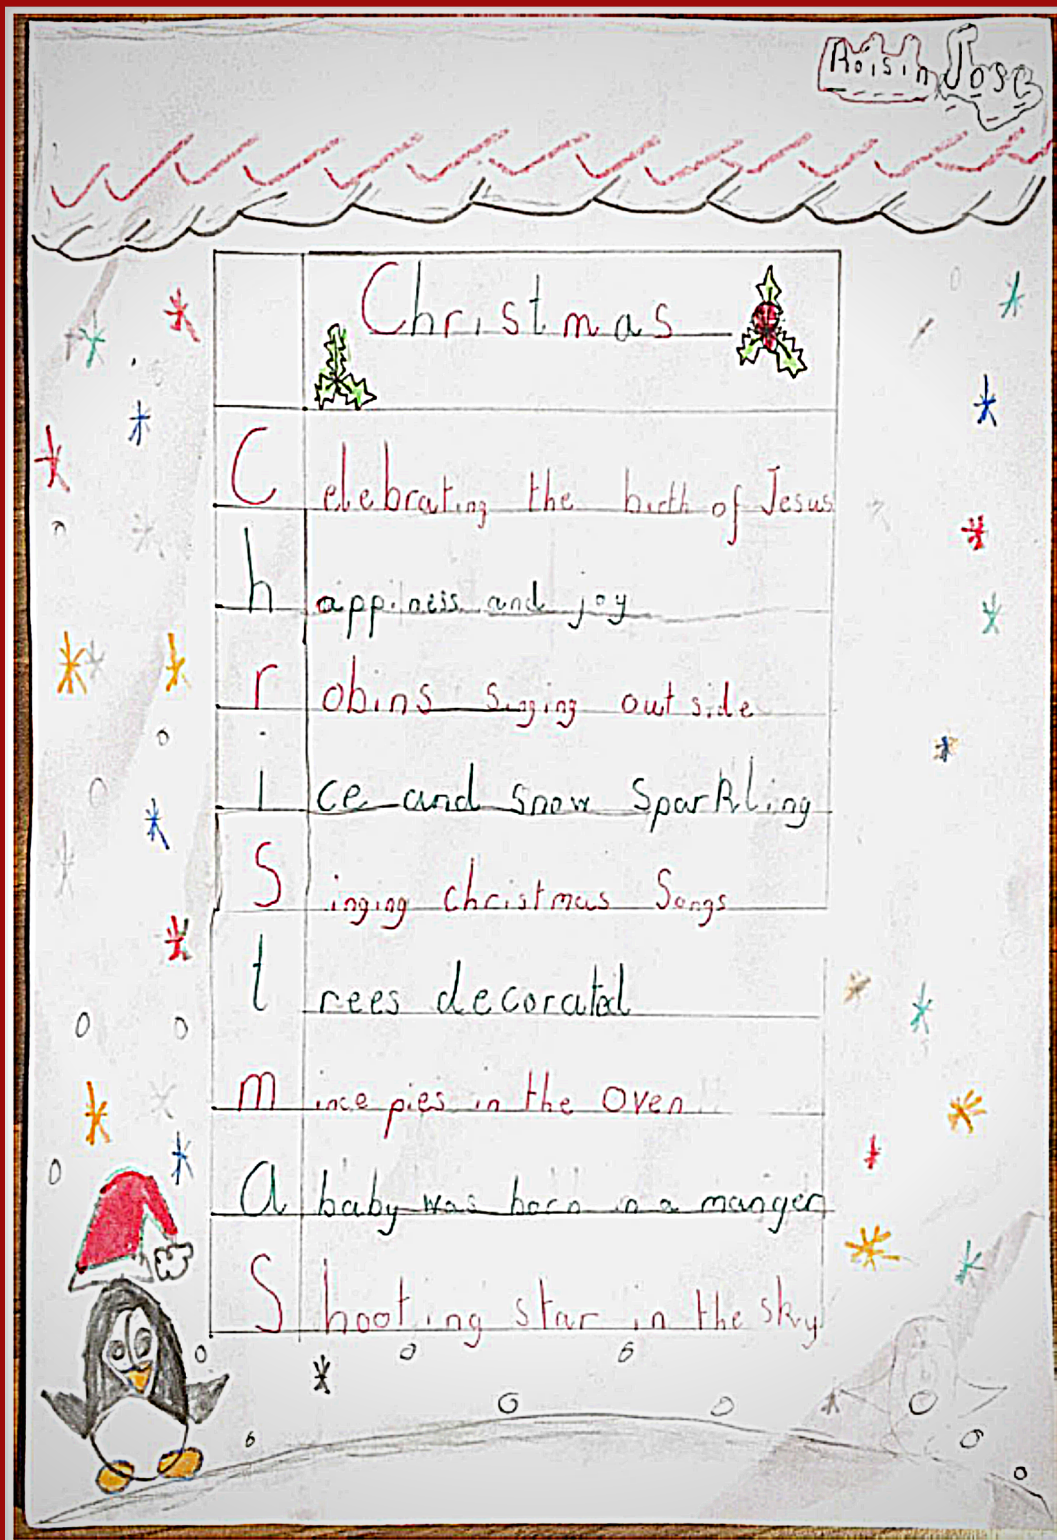 Roisin Jose
Christmas
Celebrating the birth of Jesus
happiness and joy
robins singing outside
ice and snow Sparkling
Singing christmas Songs
trees decorated
mince pies in the Oven
A baby was born in a manger
Shooting star in the sky